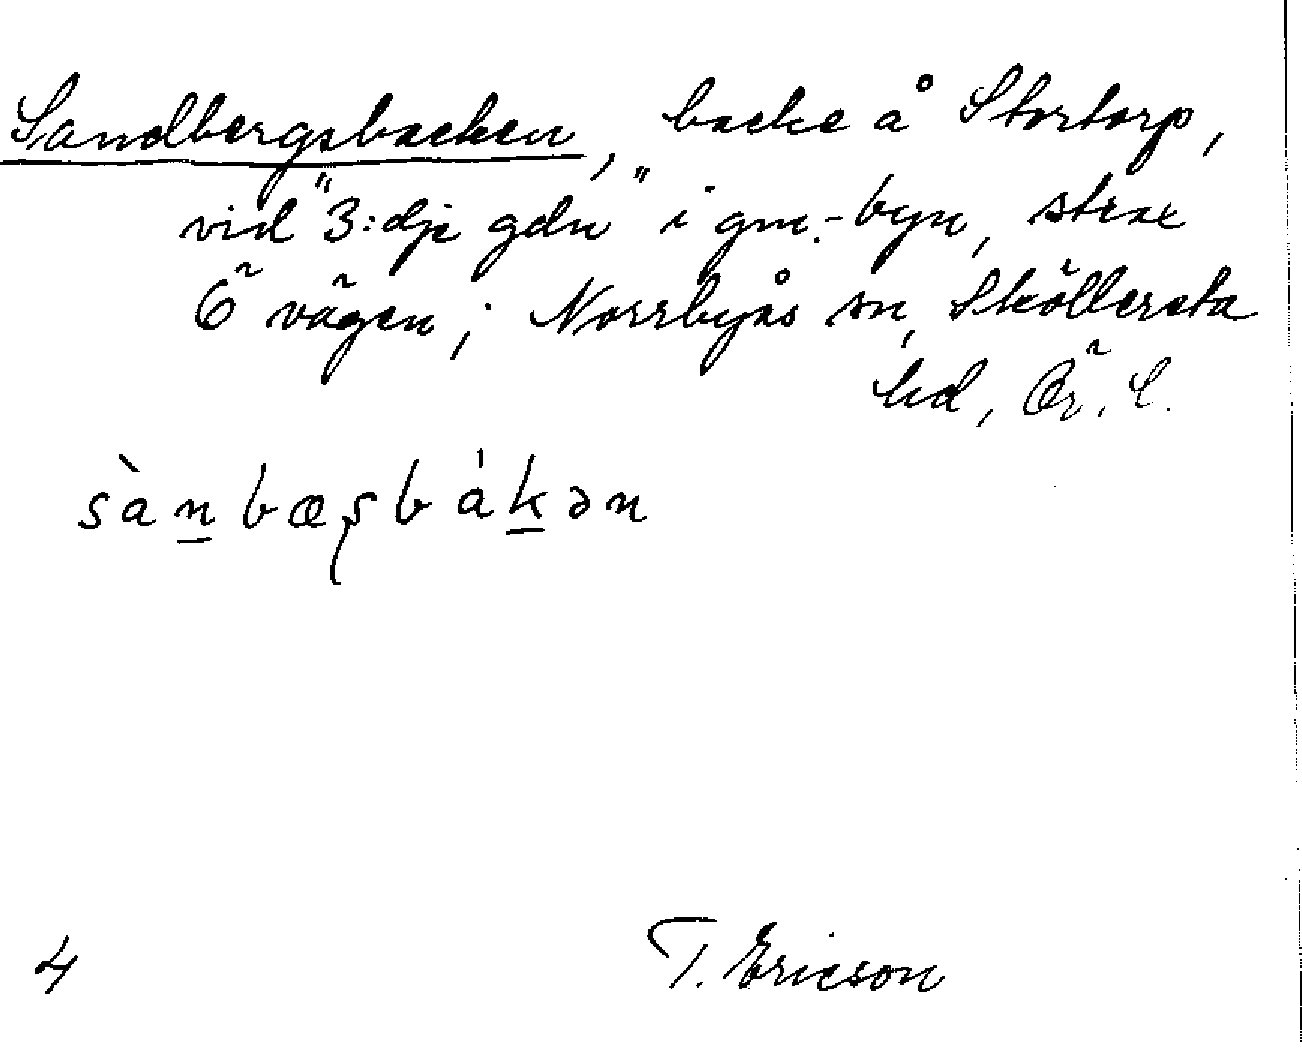 Sandbergsbacken, backe å Stortorp,
vid "3:dje gdn" i gm.-byn, strax
Ö vägen; Norrbyås sn, Sköllersta
hd, Ör. l.
sàn̲bæʂbák̲ən
4 T. Ericson